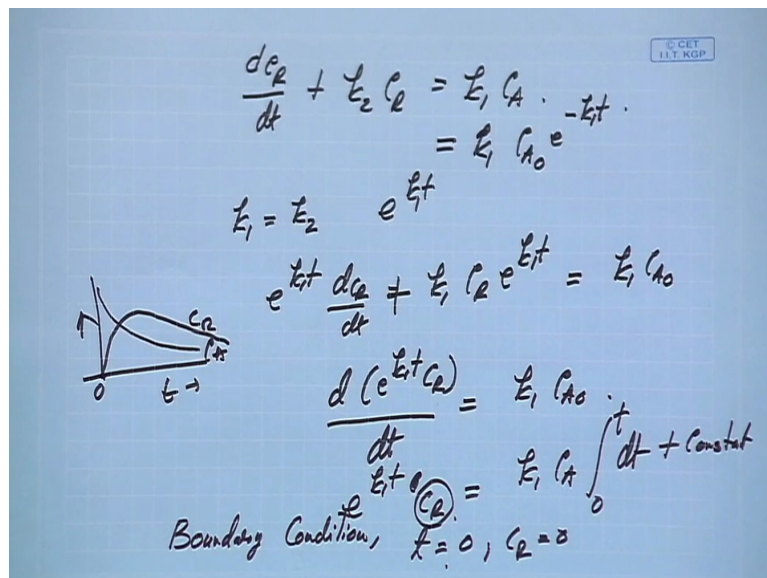 © CET
I.I.T. KGP
dC_R/dt + k_2 C_R = k_1 C_A .
= k_1 C_{A0} e^{-k_1 t} .
k_1 = k_2 e^{k_1 t}
e^{k_1 t} dC_R/dt + k_1 C_R e^{k_1 t} = k_1 C_{A0}
C_R
C_A
0 t →
d(e^{k_1 t} C_R)/dt = k_1 C_{A0} .
e^{k_1 t} C_R = k_1 C_A ∫_0^t dt + Constat
Boundary Condition, t = 0, C_R = 0